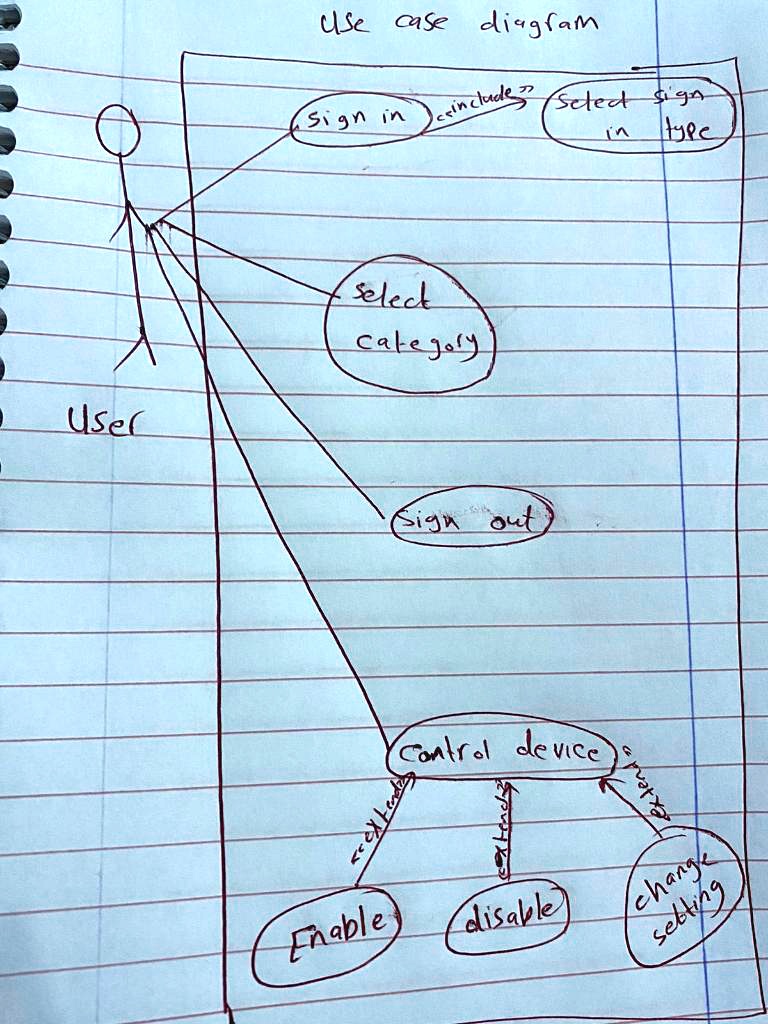 Use case diagram
Sign in
<<include>>
Select sign
in type
Select
category
User
Sign out
Control device
<<extend>>
<<extend>>
<<extend>>
Enable
disable
change
setting